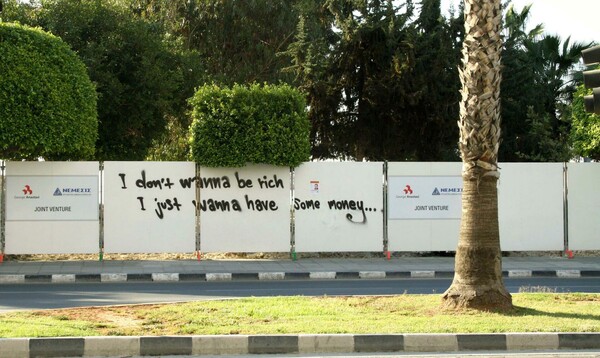 NEMESIS
JOINT VENTURE
I don't wanna be rich
I just wanna have some money...
NEMESIS
JOINT VENTURE